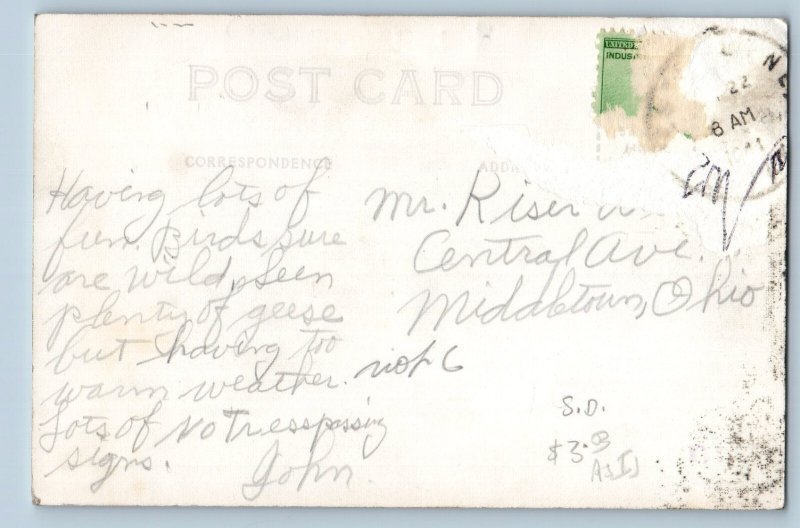 POST CARD
UNITED
INDUS
22
8 AM
CORRESPONDENCE
Having lots of
fun. Birds sure
are wild, seen
plenty of geese
but having too
warm weather.
Lots of No Tresspassing
signs.
John
Mr. Riser
Central Ave.
Middletown, Ohio
not 6
S.D.
$3.00
As Is